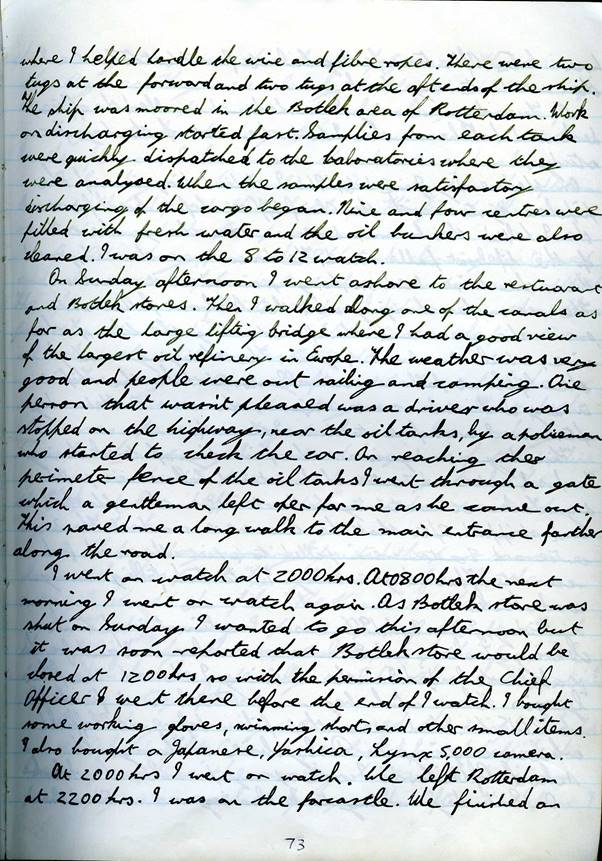 where I helped hardle the wire and fibre ropes. There were two
tugs at the forward and two tugs at the aft ends of the ship.
The ship was moored in the Botlek area of Rotterdam. Work
on discharging started fast. Samplies from each tank
were quickly dispatched to the laboratories where they
were analysed. When the samples were satisfactory
discharging of the cargo began. Nine and four centres were
filled with fresh water and the oil bunkers were also
cleaned. I was on the 8 to 12 watch.
On Sunday afternoon I went ashore to the restuarant
and Botlek stores. Then I walked along one of the canals as
far as the large liftig bridge where I had a good view
of the largest oil refinery in Europe. The weather was very
good and people were out sailing and camping. One
person that wasn't pleased was a driver who was
stopped on the highway, near the oil tanks, by a policeman
who started to check the car. On reaching the
perimeter fence of the oil tanks I went through a gate
which a gentleman left open for me as he came out.
This saved me a long walk to the main entrance farther
along the road.
I went on watch at 2000hrs. At 0800hrs the next
morning I went on watch again. As Botlek store was
shut on Sunday I wanted to go this afternoon but
it was soon reported that Botlek store would be
closed at 1200hrs so with the permission of the Chief
Officer I went there before the end of I watch. I bought
some working gloves, swimming shorts and other small items.
I also bought a Japanese, Yashica, Lynx 5,000 camera.
At 2000hrs I went on watch. We left Rotterdam
at 2200hrs. I was on the forcastle. We finished on
73